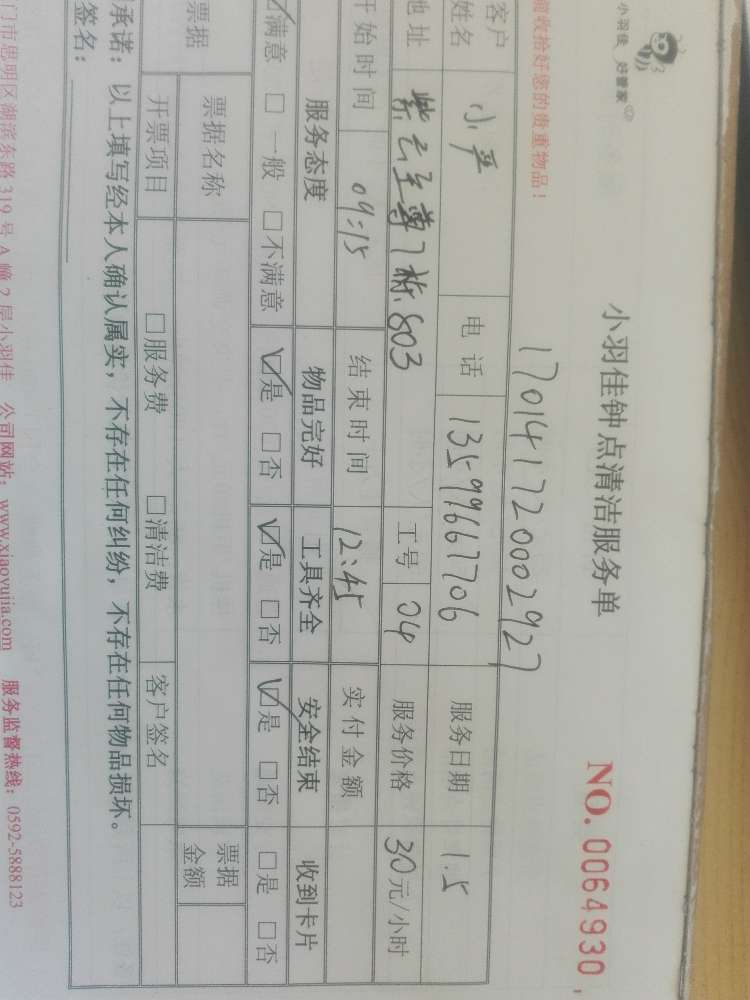 小羽佳 好管家
小羽佳钟点清洁服务单
NO. 0064930
收拾好您的贵重物品！
1701417200002927
客户姓名 小严 电话 13599667706 服务日期 1.5
地址 紫云至尊7栋803 工号 04 服务价格 30元/小时
开始时间 09:15 结束时间 12:45 实付金额
服务态度 物品完好 工具齐全 安全结束 收到卡片
☑满意 □一般 □不满意 ☑是 □否 ☑是 □否 ☑是 □否 □是 □否
票据 票据名称 票据金额
开票项目 □服务费 □清洁费 客户签名
承诺：以上填写经本人确认属实，不存在任何纠纷，不存在任何物品损坏。
签名：
门市思明区湖滨东路319号A幢2层小羽佳 公司网站：www.xiaoyujia.com 服务监督热线：0592-5888123